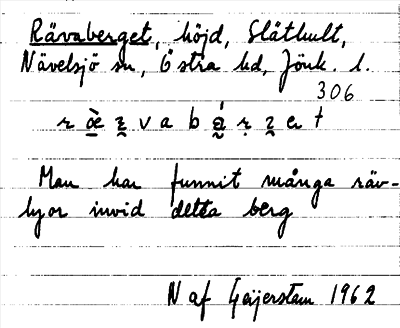 Rävaberget, höjd, Släthult,
Nävelsjö sn, Östra hd, Jönk. l.
306
Man har funnit många räv-
lyor invid detta berg
N af Geijerstam 1962